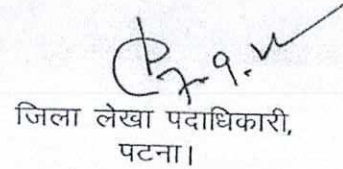 जिला लेखा पदाधिकारी,
पटना।